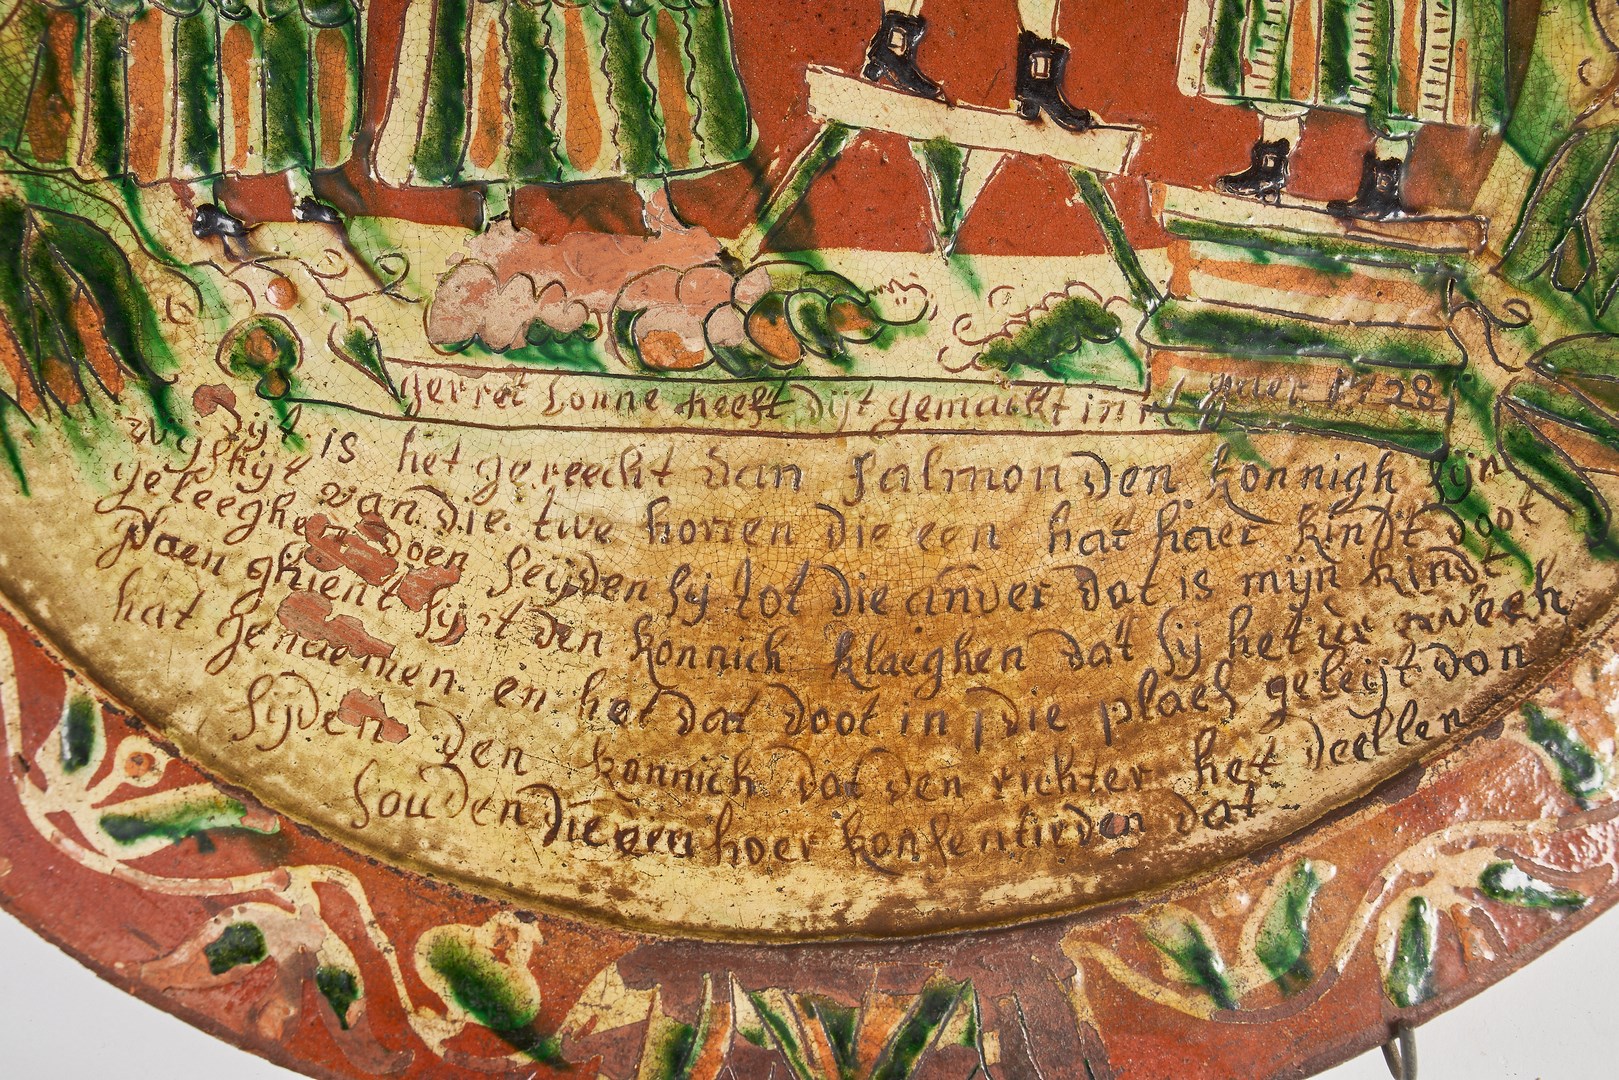 gerret Lonne heeft dijt gemackt in it jaer 1728
dijt is het gereecht van salmon den konnigh sijn
wijshijt van die twe horren die een hat haer kindt doot
geleeghen doen seijden sij tot die anver dat is mijn kindt
daen ghient sij 't den konnich klaeghen dat sij het ier weeh
hat genaemen en het dat doot in die plaes geleijt don
sijden den konnich dat den richter het deellen
souden die een hoer konsentirden dat